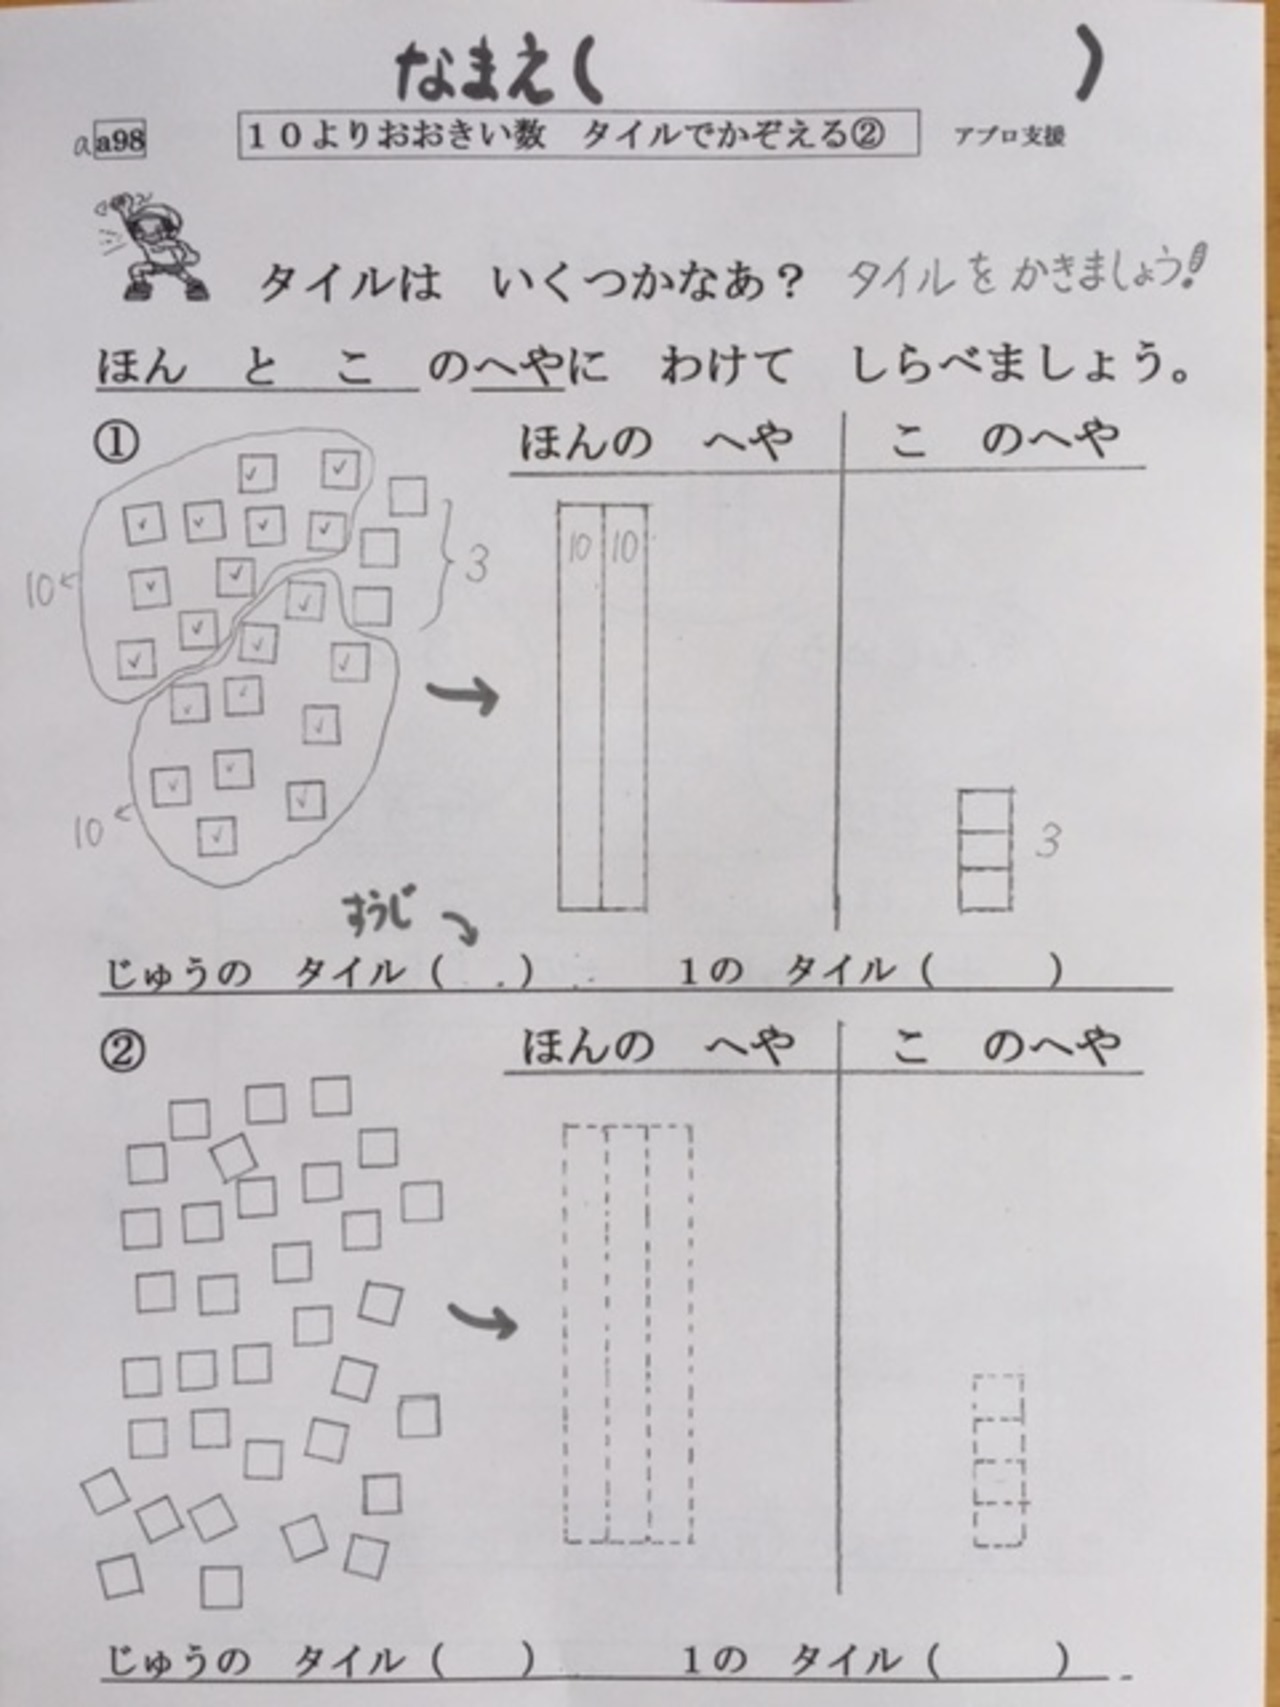 なまえ( )
a a98 10よりおおきい数 タイルでかぞえる② アプロ支援
タイルは いくつかなあ? タイルを かきましょう!
ほん と こ のへやに わけて しらべましょう。
① ほんの へや こ のへや
10 10
10 3
10 3
すうじ
じゅうの タイル( ) 1の タイル( )
② ほんの へや こ のへや
じゅうの タイル( ) 1の タイル( )